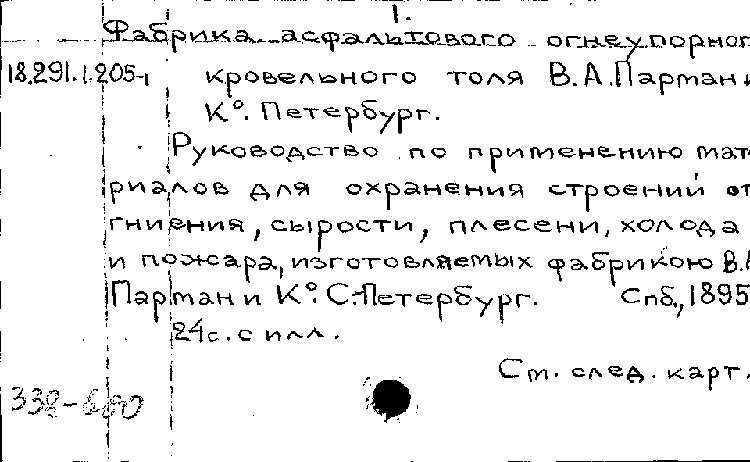 1.
Фабрика асфальтового огнеупорног
18.291.1.205-1 кровельного толя В.А.Парман и
К°. Петербург.
Руководство по применению мат
риалов для охранения строений от
гниения, сырости, плесени, холода
и пожара, изготовляемых фабрикою В.А
Парман и К°. С.-Петербург. Спб., 1895
24с. с илл.
См. след. карт.
338-680